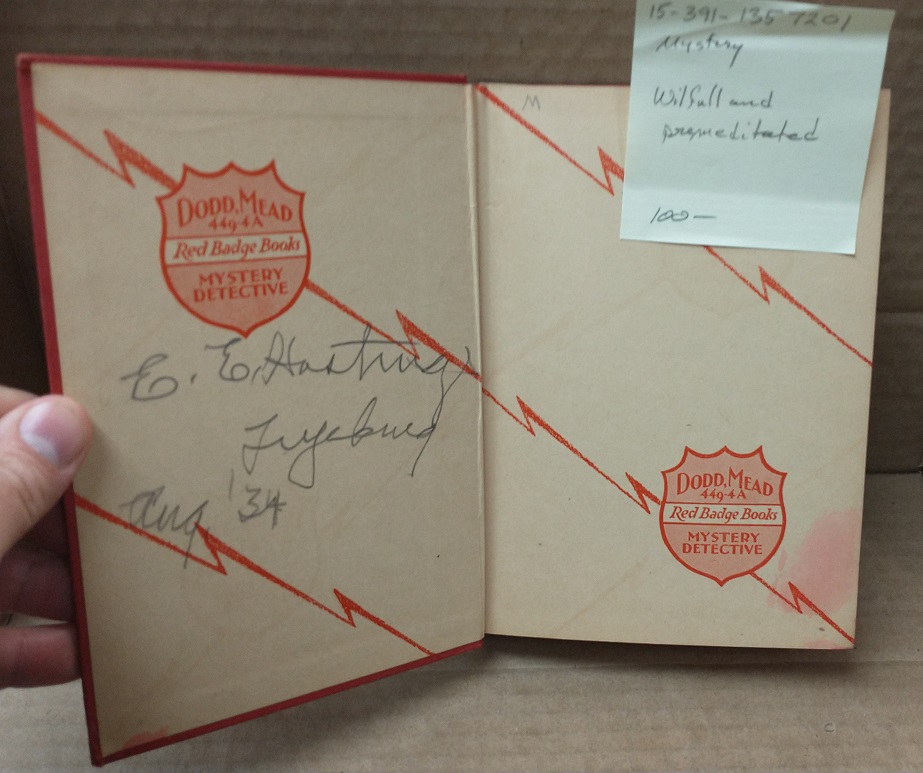 DODD, MEAD
449-4A
Red Badge Books
MYSTERY
DETECTIVE
E. E. Hastings
Fryeburg
Aug '34
M
15-391-135 7201
Mystery
Wilfull and
premeditated
100-
DODD, MEAD
449-4A
Red Badge Books
MYSTERY
DETECTIVE